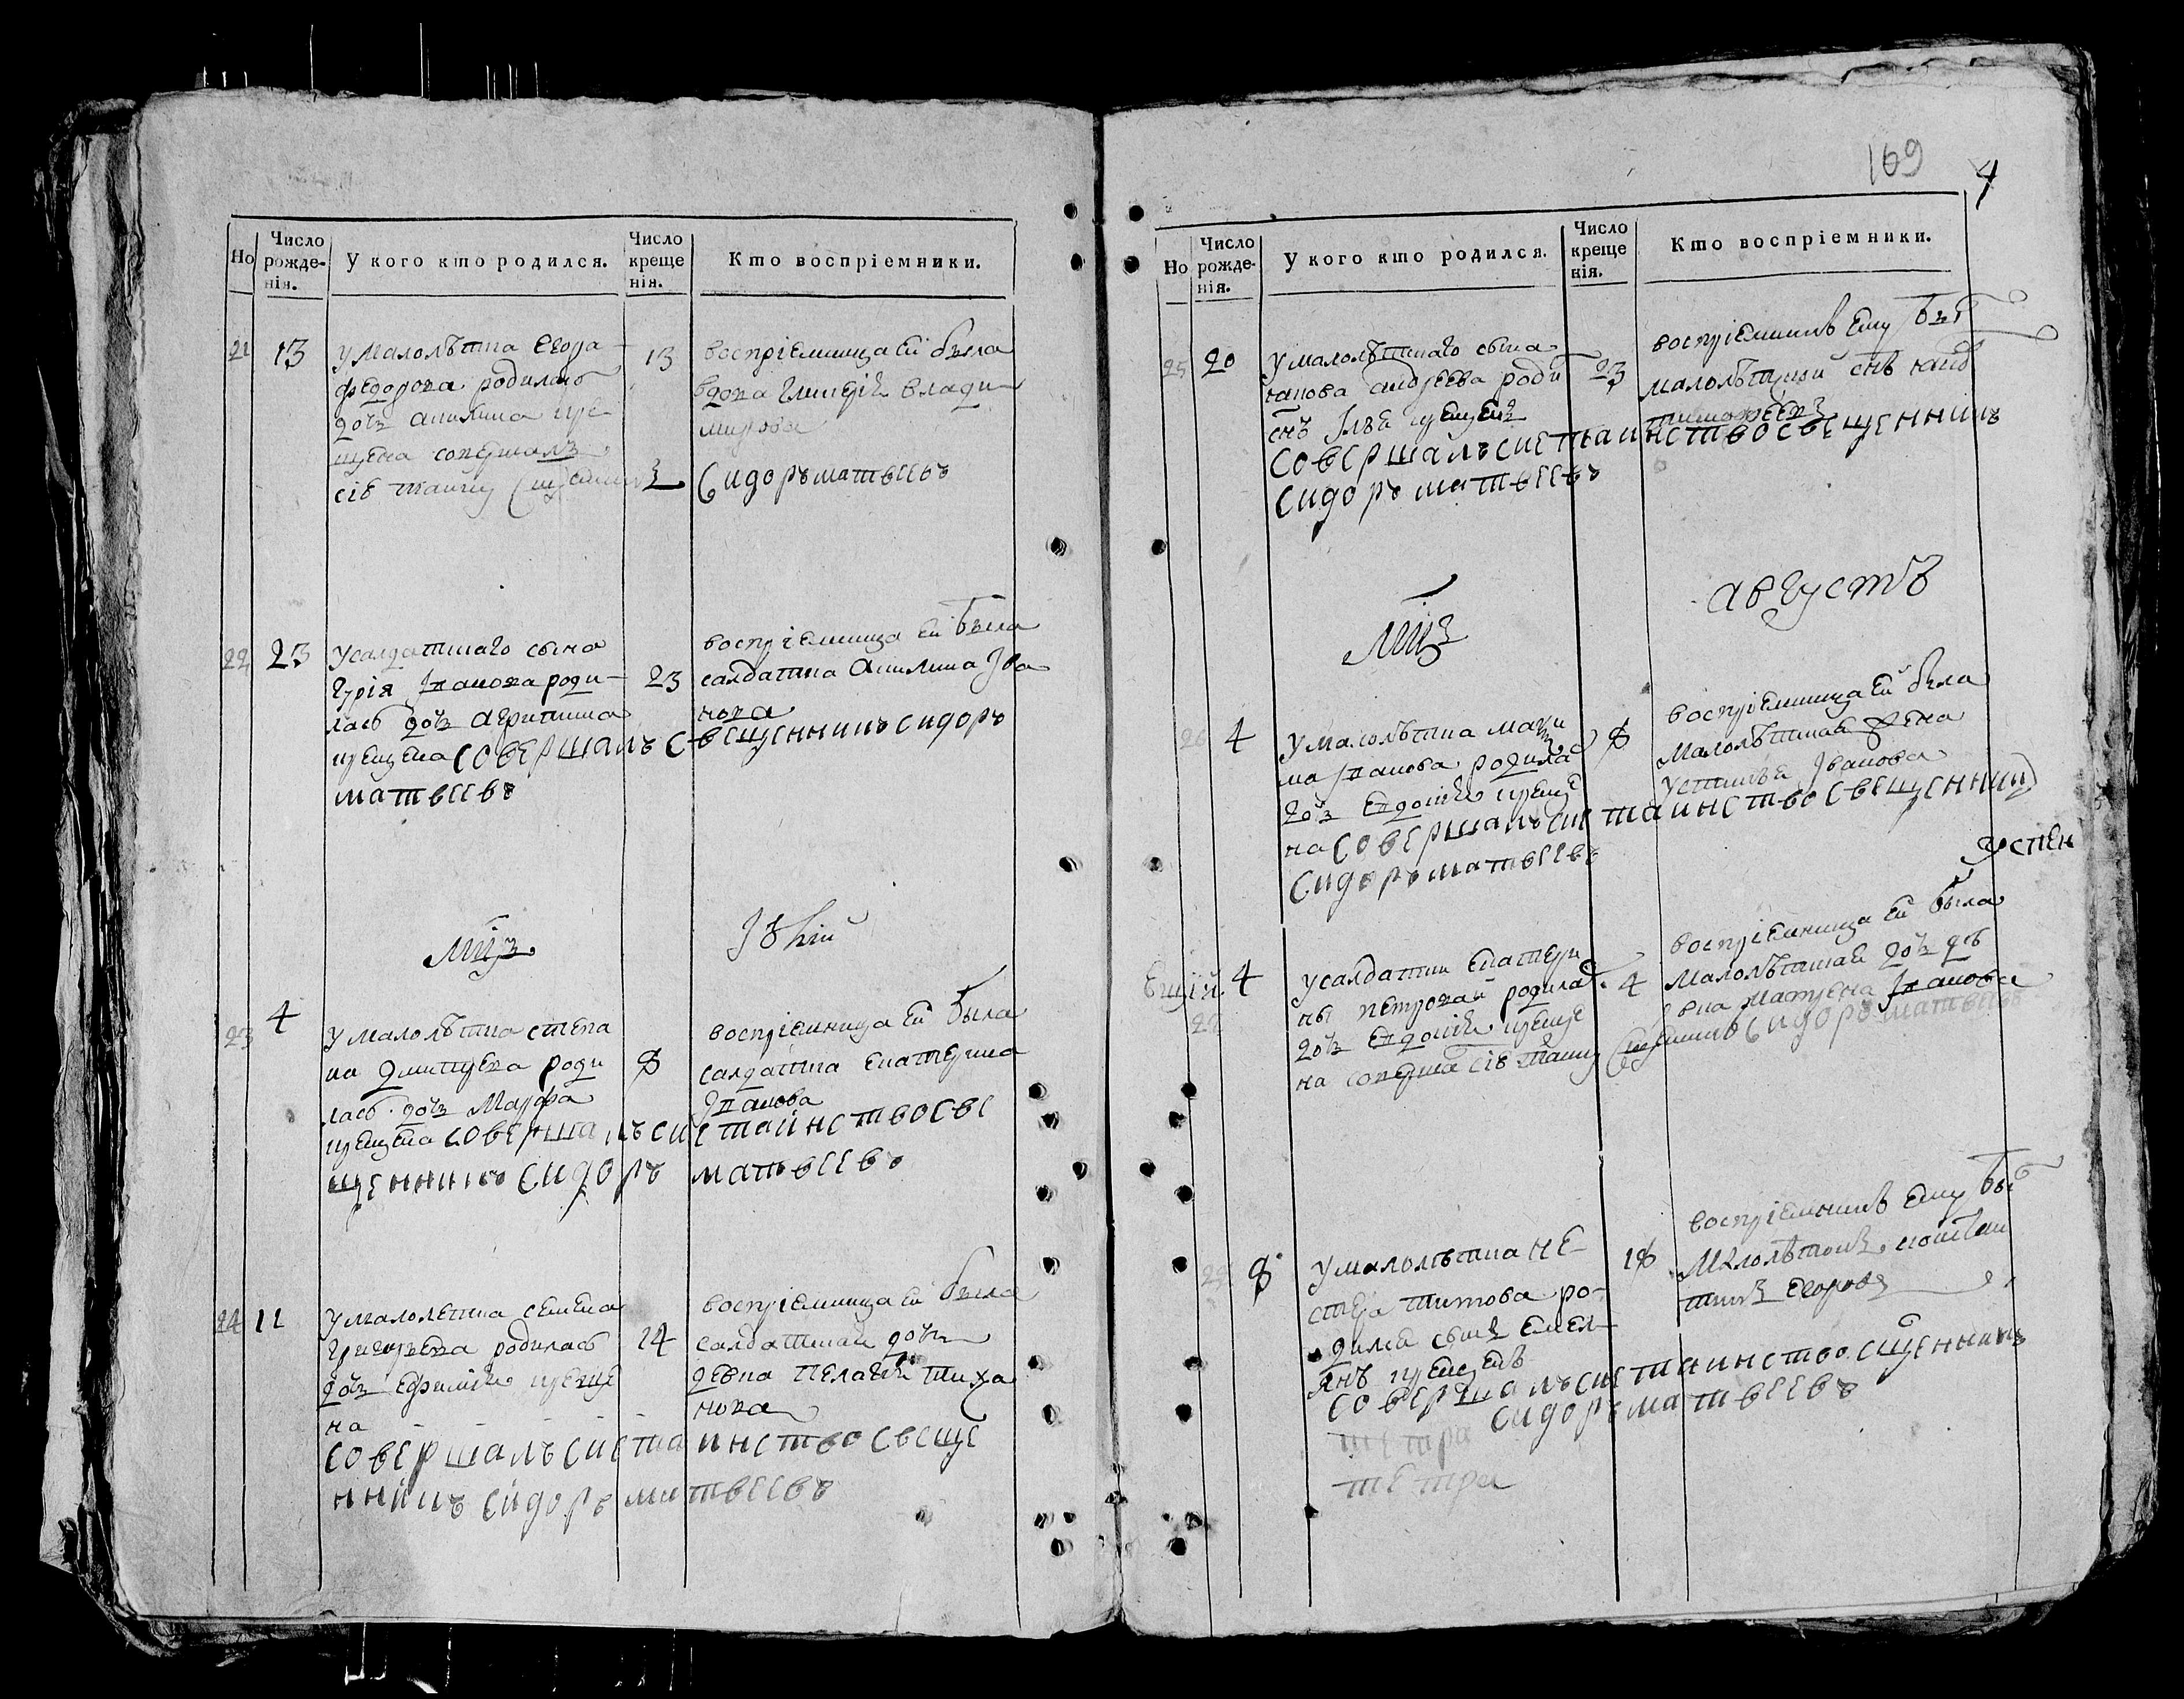 Но
Число рожде- нія.
У кого кто родился.
Число креще нія.
Кто воспріемники.
21
13
у малолѣтка егора
федорова родилась
дочь акилина кре
щена совершалъ
сіе таину сщенникъ
13
воспріемница ей была
вдова гликерія влади
мирова
Сидоръ матвеевъ
22
23
у салдатскаго сына
гурія Iванова роди-
лась дочь агрипина
крещена совершалъ свещенникъ сидоръ
матвеевъ
23
воспріемница ей была
салдатка акилина Iва
нова
мцъ
Iюлій
23
4
у малолѣтка степа
на дмитрева роди
лась дочь марфа
крещена совершалъ сие таинство све
щенникъ сидоръ матвеевъ
8
воспріемница ей была
салдатка екатерина
Iванова
24
11
у малолетка семена
григорьева родилась
дочь ефимія креще
на
совершалъ сие таинство свеще
нникъ сидоръ матвеевъ
14
воспріемница ей была
салдатская дочь
девка пелагія тиха
нова
169
4
Но
Число рожде- нія.
У кого кто родился.
Число креще нія.
Кто воспріемники.
25
20
у малолѣтнаго сына
андреева роди
снъ Iлья крещенъ
совершалъ сие таинство свещенникъ
сидоръ матвеевъ
23
воспріемникъ ему былъ
малолѣтный снъ
мцъ
августъ
26
4
у малолѣтка макси
ма Iванова родила
дочь евдокія креще
на совершалъ сие таинство свещенникъ
сидоръ матвеевъ
8
воспріемница ей была
малолѣтная жена
устинья Iванова
успен
4
у салдатки екатери
ны петровай родила
дочь евдокія креще
на соверша сіе таину сщенникъ сидоръ матвеевъ
4
воспріемница ей была
малолѣтная дочь де
вка матрена Iванова
8
у малолѣтка не-
стера титова ро-
дился сынъ емел-
янъ крещенъ
совершалъ сие таинство сщенникъ
сидоръ матвеевъ
18
воспріемникъ ему бы
малолѣтокъ констан
тинъ егоровъ